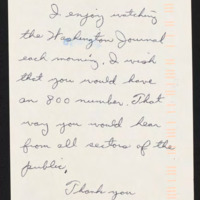 I enjoy watching
the Washington Journal
each morning. I wish
that you would have
an 800 number. That
way you would hear
from all sectors of the
public.
Thank you